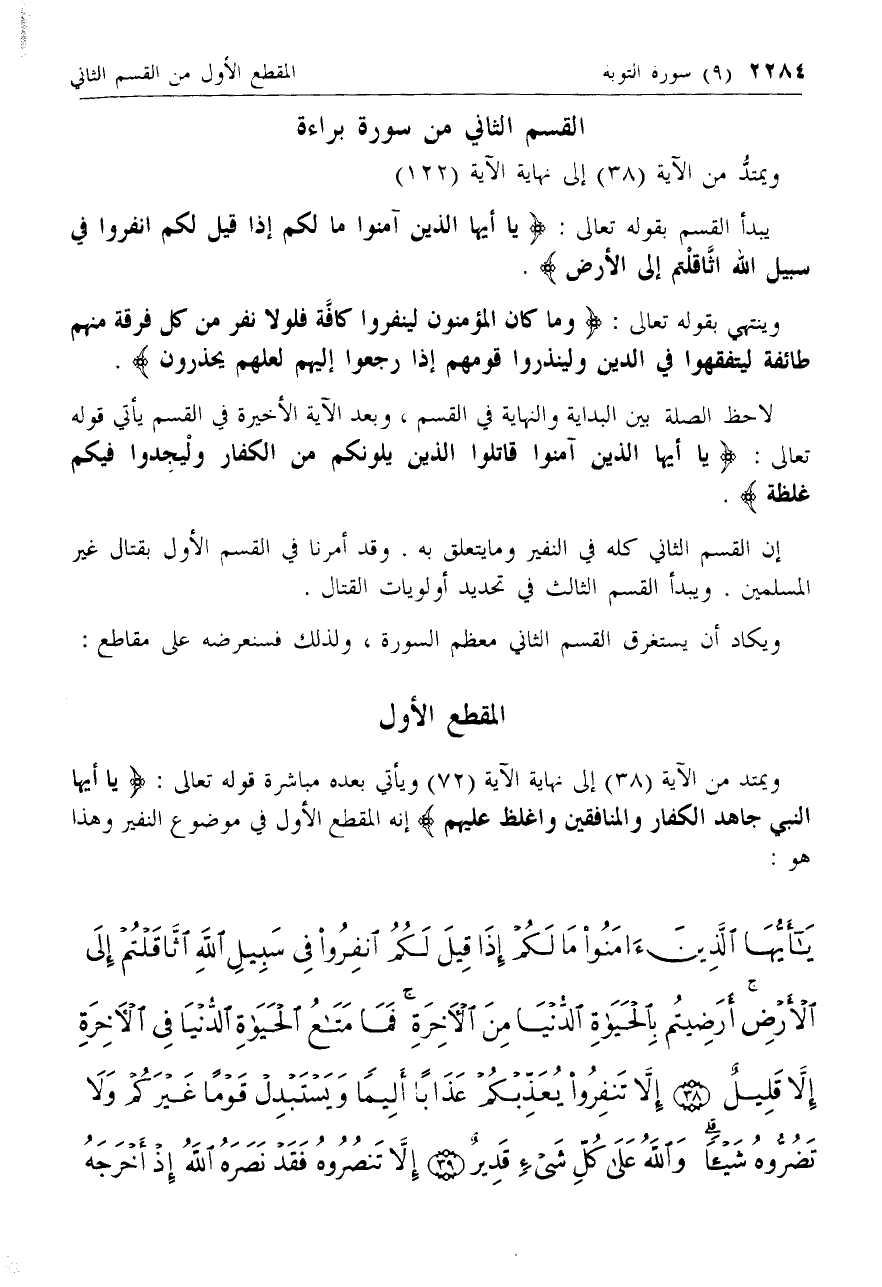 ٢٢٨٤ (٩) سورة التوبة المقطع الأول من القسم الثاني
القسم الثاني من سورة براءة
ويمتدُّ من الآية (٣٨) إلى نهاية الآية (١٢٢)
يبدأ القسم بقوله تعالى : ﴿ يا أيها الذين آمنوا ما لكم إذا قيل لكم انفروا في
سبيل الله اثَّاقلْتم إلى الأرض ﴾ .
وينتهي بقوله تعالى : ﴿ وما كان المؤمنون لينفروا كافَّة فلولا نفر من كل فرقة منهم
طائفة ليتفقهوا في الدين ولينذروا قومهم إذا رجعوا إليهم لعلهم يحذرون ﴾ .
لاحظ الصلة بين البداية والنهاية في القسم ، وبعد الآية الأخيرة في القسم يأتي قوله
تعالى : ﴿ يا أيها الذين آمنوا قاتلوا الذين يلونكم من الكفار ولْيجِدوا فيكم
غلظة ﴾ .
إن القسم الثاني كله في النفير ومايتعلق به . وقد أمرنا في القسم الأول بقتال غير
المسلمين . ويبدأ القسم الثالث في تحديد أولويات القتال .
ويكاد أن يستغرق القسم الثاني معظم السورة ، ولذلك فسنعرضه على مقاطع :
المقطع الأول
ويمتد من الآية (٣٨) إلى نهاية الآية (٧٢) ويأتي بعده مباشرة قوله تعالى : ﴿ يا أيها
النبي جاهد الكفار والمنافقين واغلظ عليهم ﴾ إنه المقطع الأول في موضوع النفير وهذا
هو :
يَـٰٓأَيُّهَا ٱلَّذِينَ ءَامَنُوا۟ مَا لَكُمْ إِذَا قِيلَ لَكُمُ ٱنفِرُوا۟ فِى سَبِيلِ ٱللَّهِ ٱثَّاقَلْتُمْ إِلَى
ٱلْأَرْضِ ۚ أَرَضِيتُم بِٱلْحَيَوٰةِ ٱلدُّنْيَا مِنَ ٱلْـَٔاخِرَةِ ۚ فَمَا مَتَـٰعُ ٱلْحَيَوٰةِ ٱلدُّنْيَا فِى ٱلْـَٔاخِرَةِ
إِلَّا قَلِيلٌ ﴿٣٨﴾ إِلَّا تَنفِرُوا۟ يُعَذِّبْكُمْ عَذَابًا أَلِيمًا وَيَسْتَبْدِلْ قَوْمًا غَيْرَكُمْ وَلَا
تَضُرُّوهُ شَيْـًٔا ۗ وَٱللَّهُ عَلَىٰ كُلِّ شَىْءٍ قَدِيرٌ ﴿٣٩﴾ إِلَّا تَنصُرُوهُ فَقَدْ نَصَرَهُ ٱللَّهُ إِذْ أَخْرَجَهُ